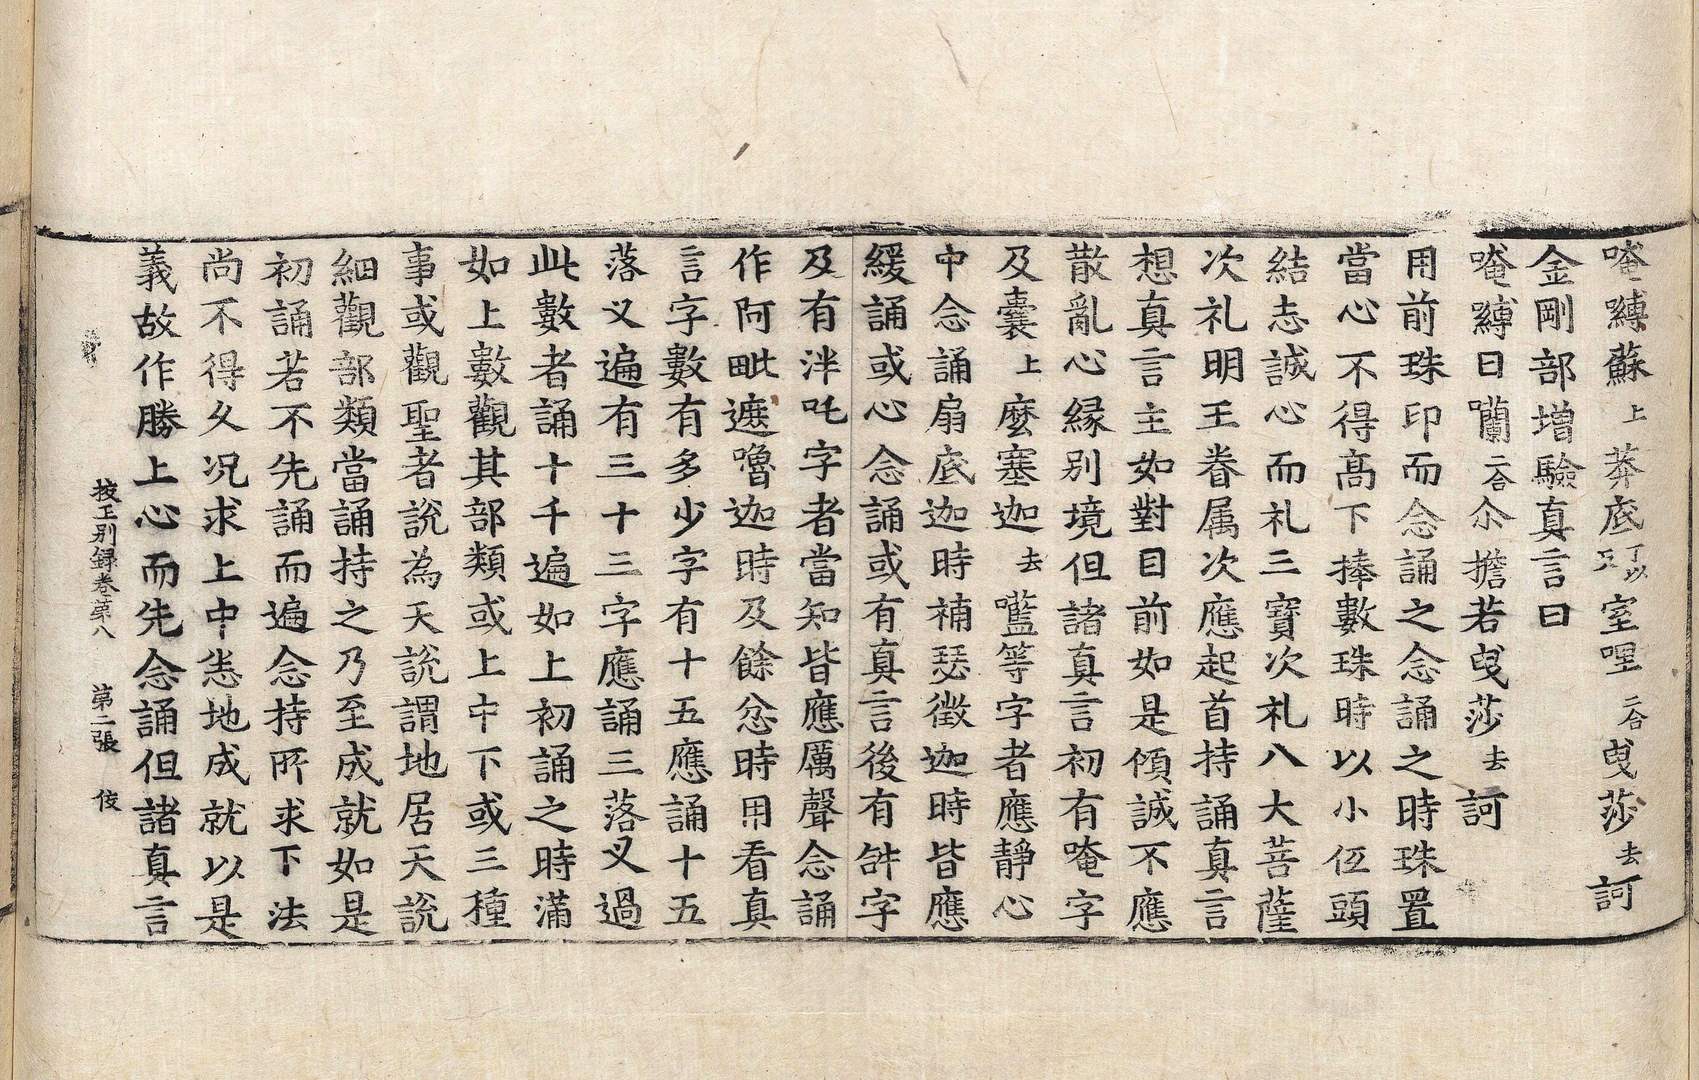 唵嚩蘇上莽底丁以反室哩二合曳莎去訶
金剛部增驗真言曰
唵嚩日囒二合尒擔若曳莎去訶
用前珠印而念誦之念誦之時珠置
當心不得髙下捧數珠時以小伍頭
結志誠心而礼三寶次礼八大菩薩
次礼明王眷属次應起首持誦真言
想真言主如對目前如是傾誠不應
散亂心緣别境但諸真言初有唵字
及囊上麽塞迦去㘕等字者應靜心
中念誦扇底迦時補瑟徵迦時皆應
緩誦或心念誦或有真言後有𤙖字
及有泮吒字者當知皆應厲聲念誦
作阿毗遮嚕迦時及餘忿時用看真
言字數有多少字有十五應誦十五
落叉遍有三十三字應誦三落叉過
此數者誦十千遍如上初誦之時滿
如上數觀其部類或上中下或三種
事或觀聖者說為天說謂地居天說
細觀部類當誦持之乃至成就如是
初誦若不先誦而遍念持所求下法
尚不得久况求上中悉地成就以是
義故作勝上心而先念誦但諸真言
挍正别録卷第八　第二張　伎